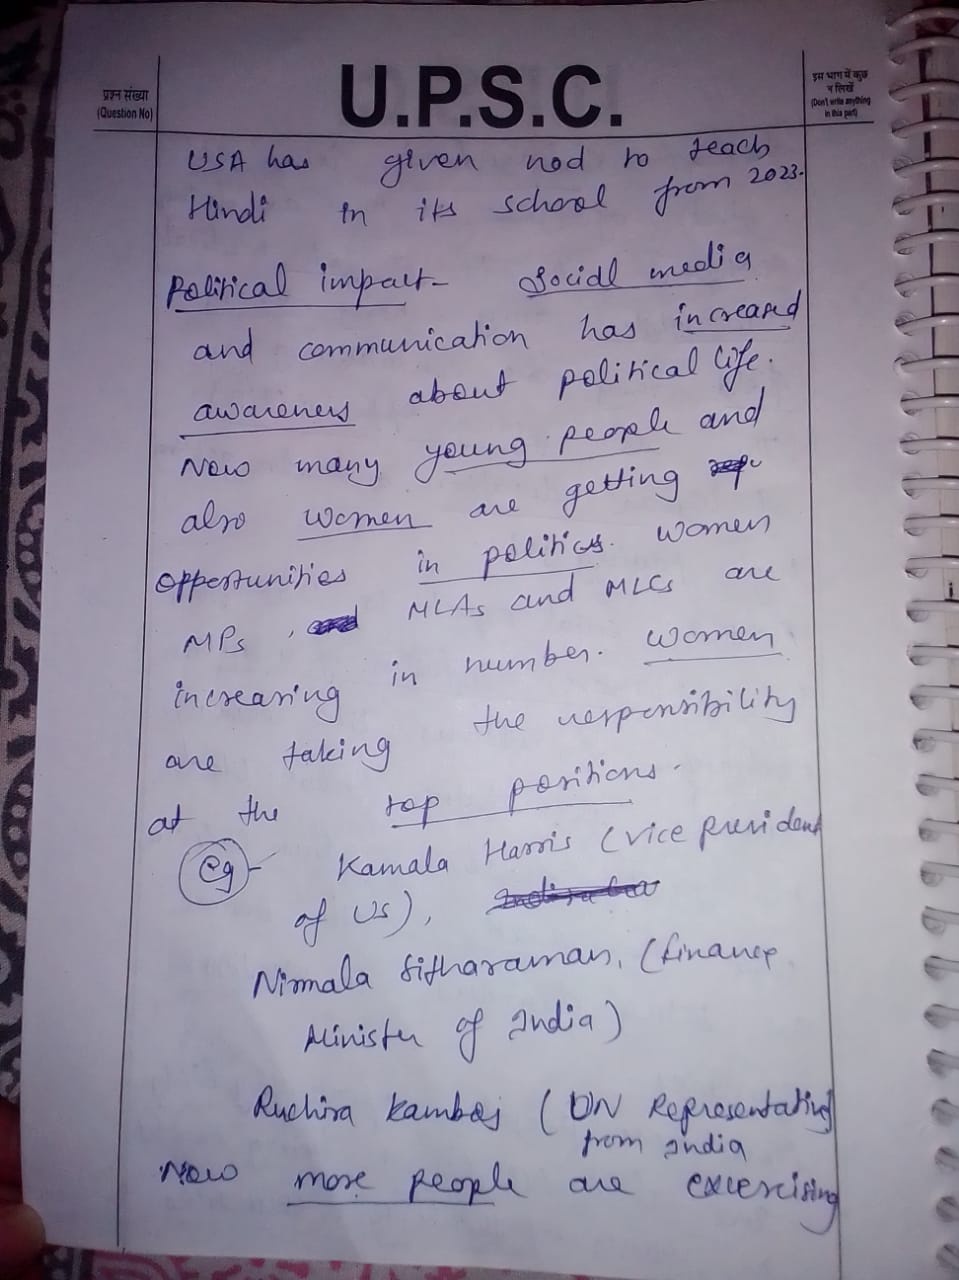 U.P.S.C.
प्रश्न संख्या
(Question No)
इस भाग में कुछ
न लिखें
(Don't write anything
in this part)
USA has given nod to teach
Hindi in its school from 2023.
Political impact - Social media
and communication has increased
awareness about political life.
Now many young people and
also women are getting
opportunities in politics. Women
MPs, MLAs and MLCs are
increasing in number. Women
are taking the responsibility
at the top positions.
eg - Kamala Harris (Vice President
of US),
Nirmala Sitharaman, (Finance
Minister of India)
Ruchira Kamboj (UN Representative
from India
Now more people are excercising